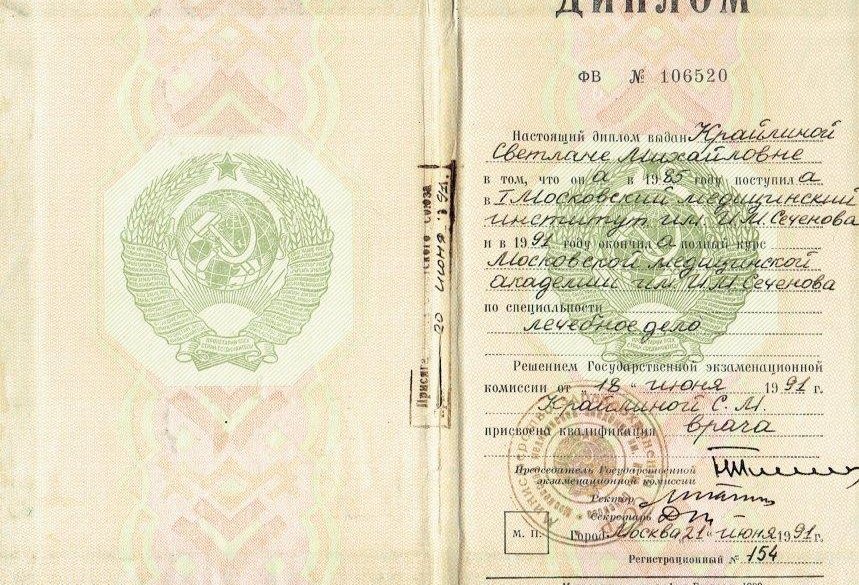 ДИПЛОМ
ФВ № 106520
Настоящий диплом выдан Крайлиной
Светлане Михайловне
в том, что он а в 1985 году поступил а
в I Московский медицинский
институт им. И.М. Сеченова
и в 1991 году окончил а полный курс
Московской медицинской
академии им. И.М. Сеченова
по специальности
лечебное дело
Решением Государственной экзаменационной
комиссии от „18“ июня 1991 г.
Крайлиной С. М.
присвоена квалификация врача
Председатель Государственной
экзаменационной комиссии
Ректор
Секретарь
М. П.
Город Москва 21 „ июня 1991 г.
Регистрационный № 154
Присяга
Союза
20 июня 1991